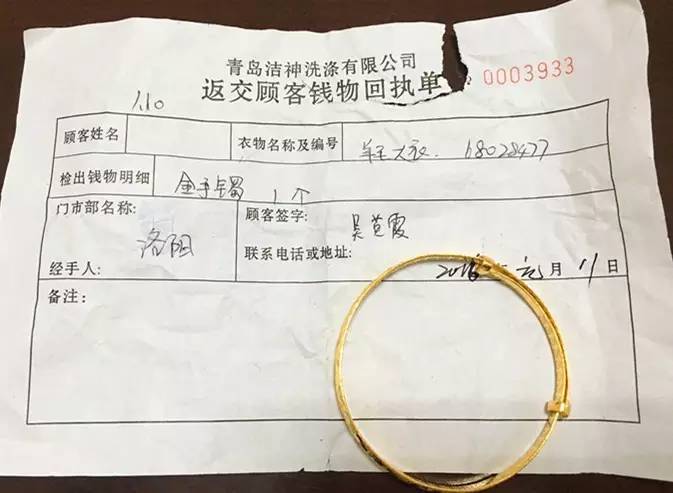 青岛洁神洗涤有限公司
返交顾客钱物回执单
0003933
110
顾客姓名
衣物名称及编号
羊毛大衣 68028477
检出钱物明细
金手镯 1个
门市部名称:
洛阳
顾客签字:
吴苣霞
经手人:
联系电话或地址:
月 11 日
备注: